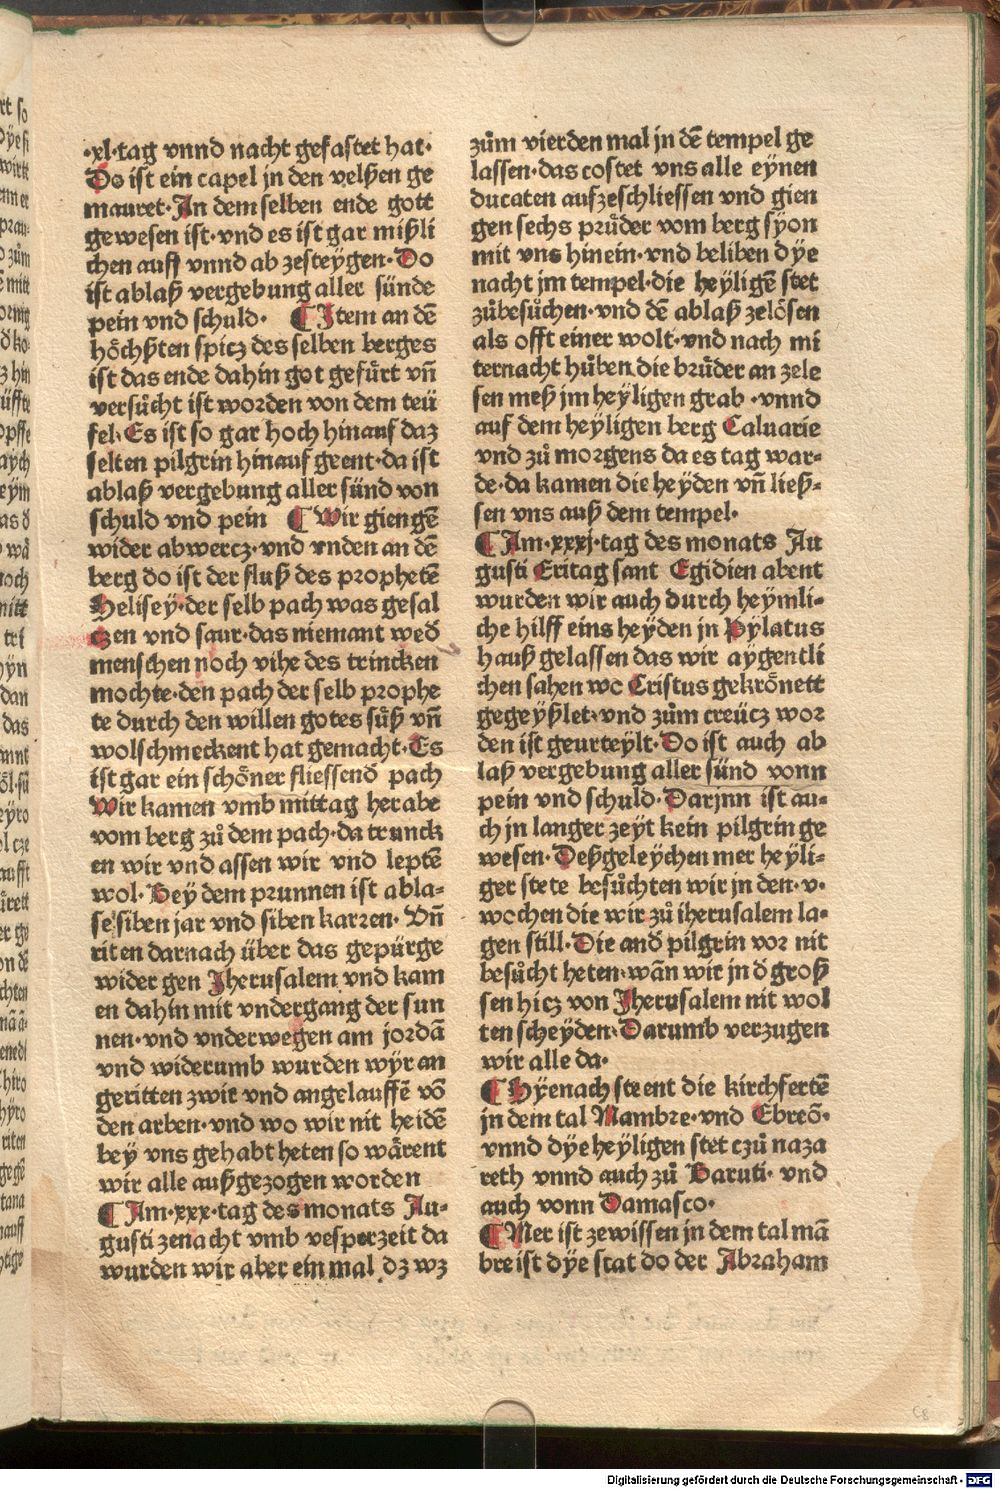 ·xl·tag vnnd nacht gefastet hat·
Do ist ein capel jn den velßen ge
mauret·Jn dem selben ende gott
gewesen ist·vnd es ist gar mißli
chen auff vnnd ab zesteÿgen·Do
ist ablaß vergebung aller sünde
pein vnd schuld· ¶Jtem an dē
höchßten spicz des selben berges
ist das ende dahin got gefürt vn̄
versůcht ist worden von dem teü
fel·Es ist so gar hoch hinauf daz
selten pilgrin hinauf geent·da ist
ablaß vergebung aller sünd von
schuld vnd pein ¶Wir giengē
wider abwercz·vnd vnden an dē
berg do ist der fluß des prophetē
Helisey·der selb pach was gesal
czen vnd saur·das niemant wed̄
menschen noch vihe des trincken
mochte·den pach der selb prophe
te durch den willen gotes süß vn̄
wolschmeckent hat gemacht·Es
ist gar ein schöner fliessend̄ pach
Wir kamen vmb mittag herabe
vom berg zů dem pach·da trunck
en wir vnd assen wir vnd leptē
wol·Beÿ dem prunnen ist abla-
se siben jar vnd siben karren·Vn̄
riten darnach über das gepürge
wider gen Jherusalem vnd kam
en dahin mit vndergang der sun
nen·vnd vnderwegen am jordā
vnd widerumb wurden wÿr an
geritten zwir vnd angelauffē vō
den arben·vnd wo wir nit heidē
beÿ vns gehabt heten so wärent
wir alle außgezogen worden
¶Am·xxx·tag des monats Au-
gusti zenacht vmb vesperzeit da
wurden wir aber ein mal dz wz
zům vierden mal jn dē tempel ge
lassen·das costet vns alle eÿnen
ducaten aufzeschliessen vnd gien
gen sechs prüder vom berg sÿon
mit vns hinein·vnd beliben dÿe
nacht jm tempel·die heÿligē stet
zůbesůchen·vnd dē ablaß zelösen
als offt einer wolt·vnd nach mi
ternacht hüben die brüder an zele
sen meß jm heÿligen grab·vnnd
auf dem heÿligen berg Caluarie
vnd zů morgens da es tag war-
de·da kamen die heÿden vn̄ ließ-
sen vns auß dem tempel·
¶Am·xxxj·tag des monats Au
gusti Eritag sant Egidien abent
wurden wir auch durch heÿmli-
che hilff eins heÿden jn Pÿlatus
hauß gelassen das wir aÿgentli
chen sahen wo Cristus gekrönett
gegeÿßlet·vnd zům creücz wor
den ist geurteÿlt·Do ist auch ab
laß vergebung aller sünd vonn
pein vnd schuld·Darjnn ist au-
ch jn langer zeÿt kein pilgrin ge
wesen·Deßgeleÿchen mer heÿli-
ger stete besůchten wir jn den·v·
wochen die wir zů iherusalem la-
gen still·Die and̄ pilgrin vor nit
besůcht heten·wān wir jn d̄ groß
sen hicz von Jherusalem nit wol
ten scheÿden·Darumb verzugen
wir alle da·
¶Hÿenach steent die kirchfertē
jn dem tal Mambre·vnd Ebreō·
vnnd dÿe heÿligen stet czů naza
reth vnnd auch zů Baruti·vnd
auch vonn Damasco·
¶Mer ist ze wissen jn dem tal mā
bre ist dÿe stat do der Abraham
Digitalisierung gefördert durch die Deutsche Forschungsgemeinschaft - DFG